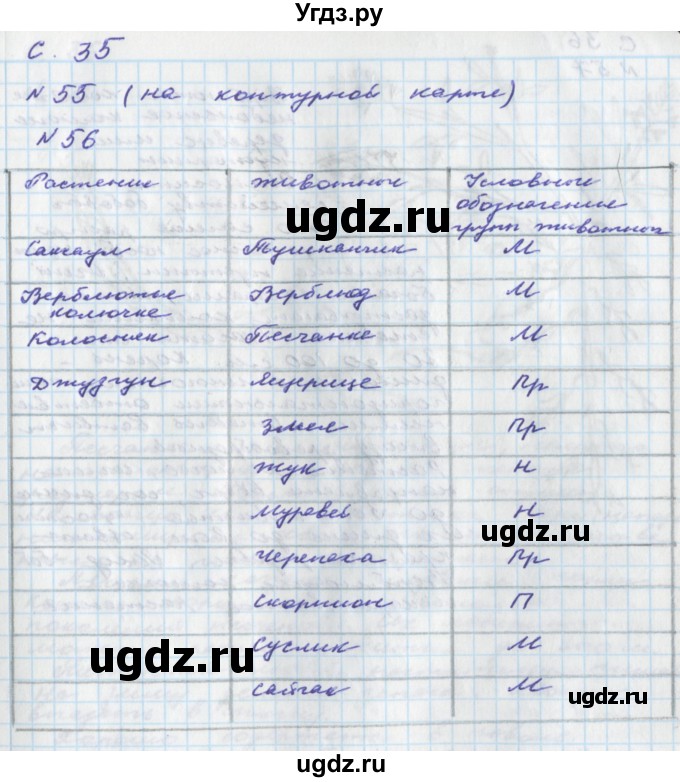 Угдз.ру
с. 35
№ 55 (на контурной карте)
№ 56
Растения Животные Условные обозначение групп животных
Саксаул Тушканчик М
Верблюжья колючка Верблюд М
Колосняк Песчанка М
Джузгун Ящерица Пр
Змея Пр
Жук Н
Муравей Н
Черепаха Пр
Скорпион П
Суслик М
Сайгак М
ugdz.ru
ugdz.ru
ugdz.ru
ugdz.ru